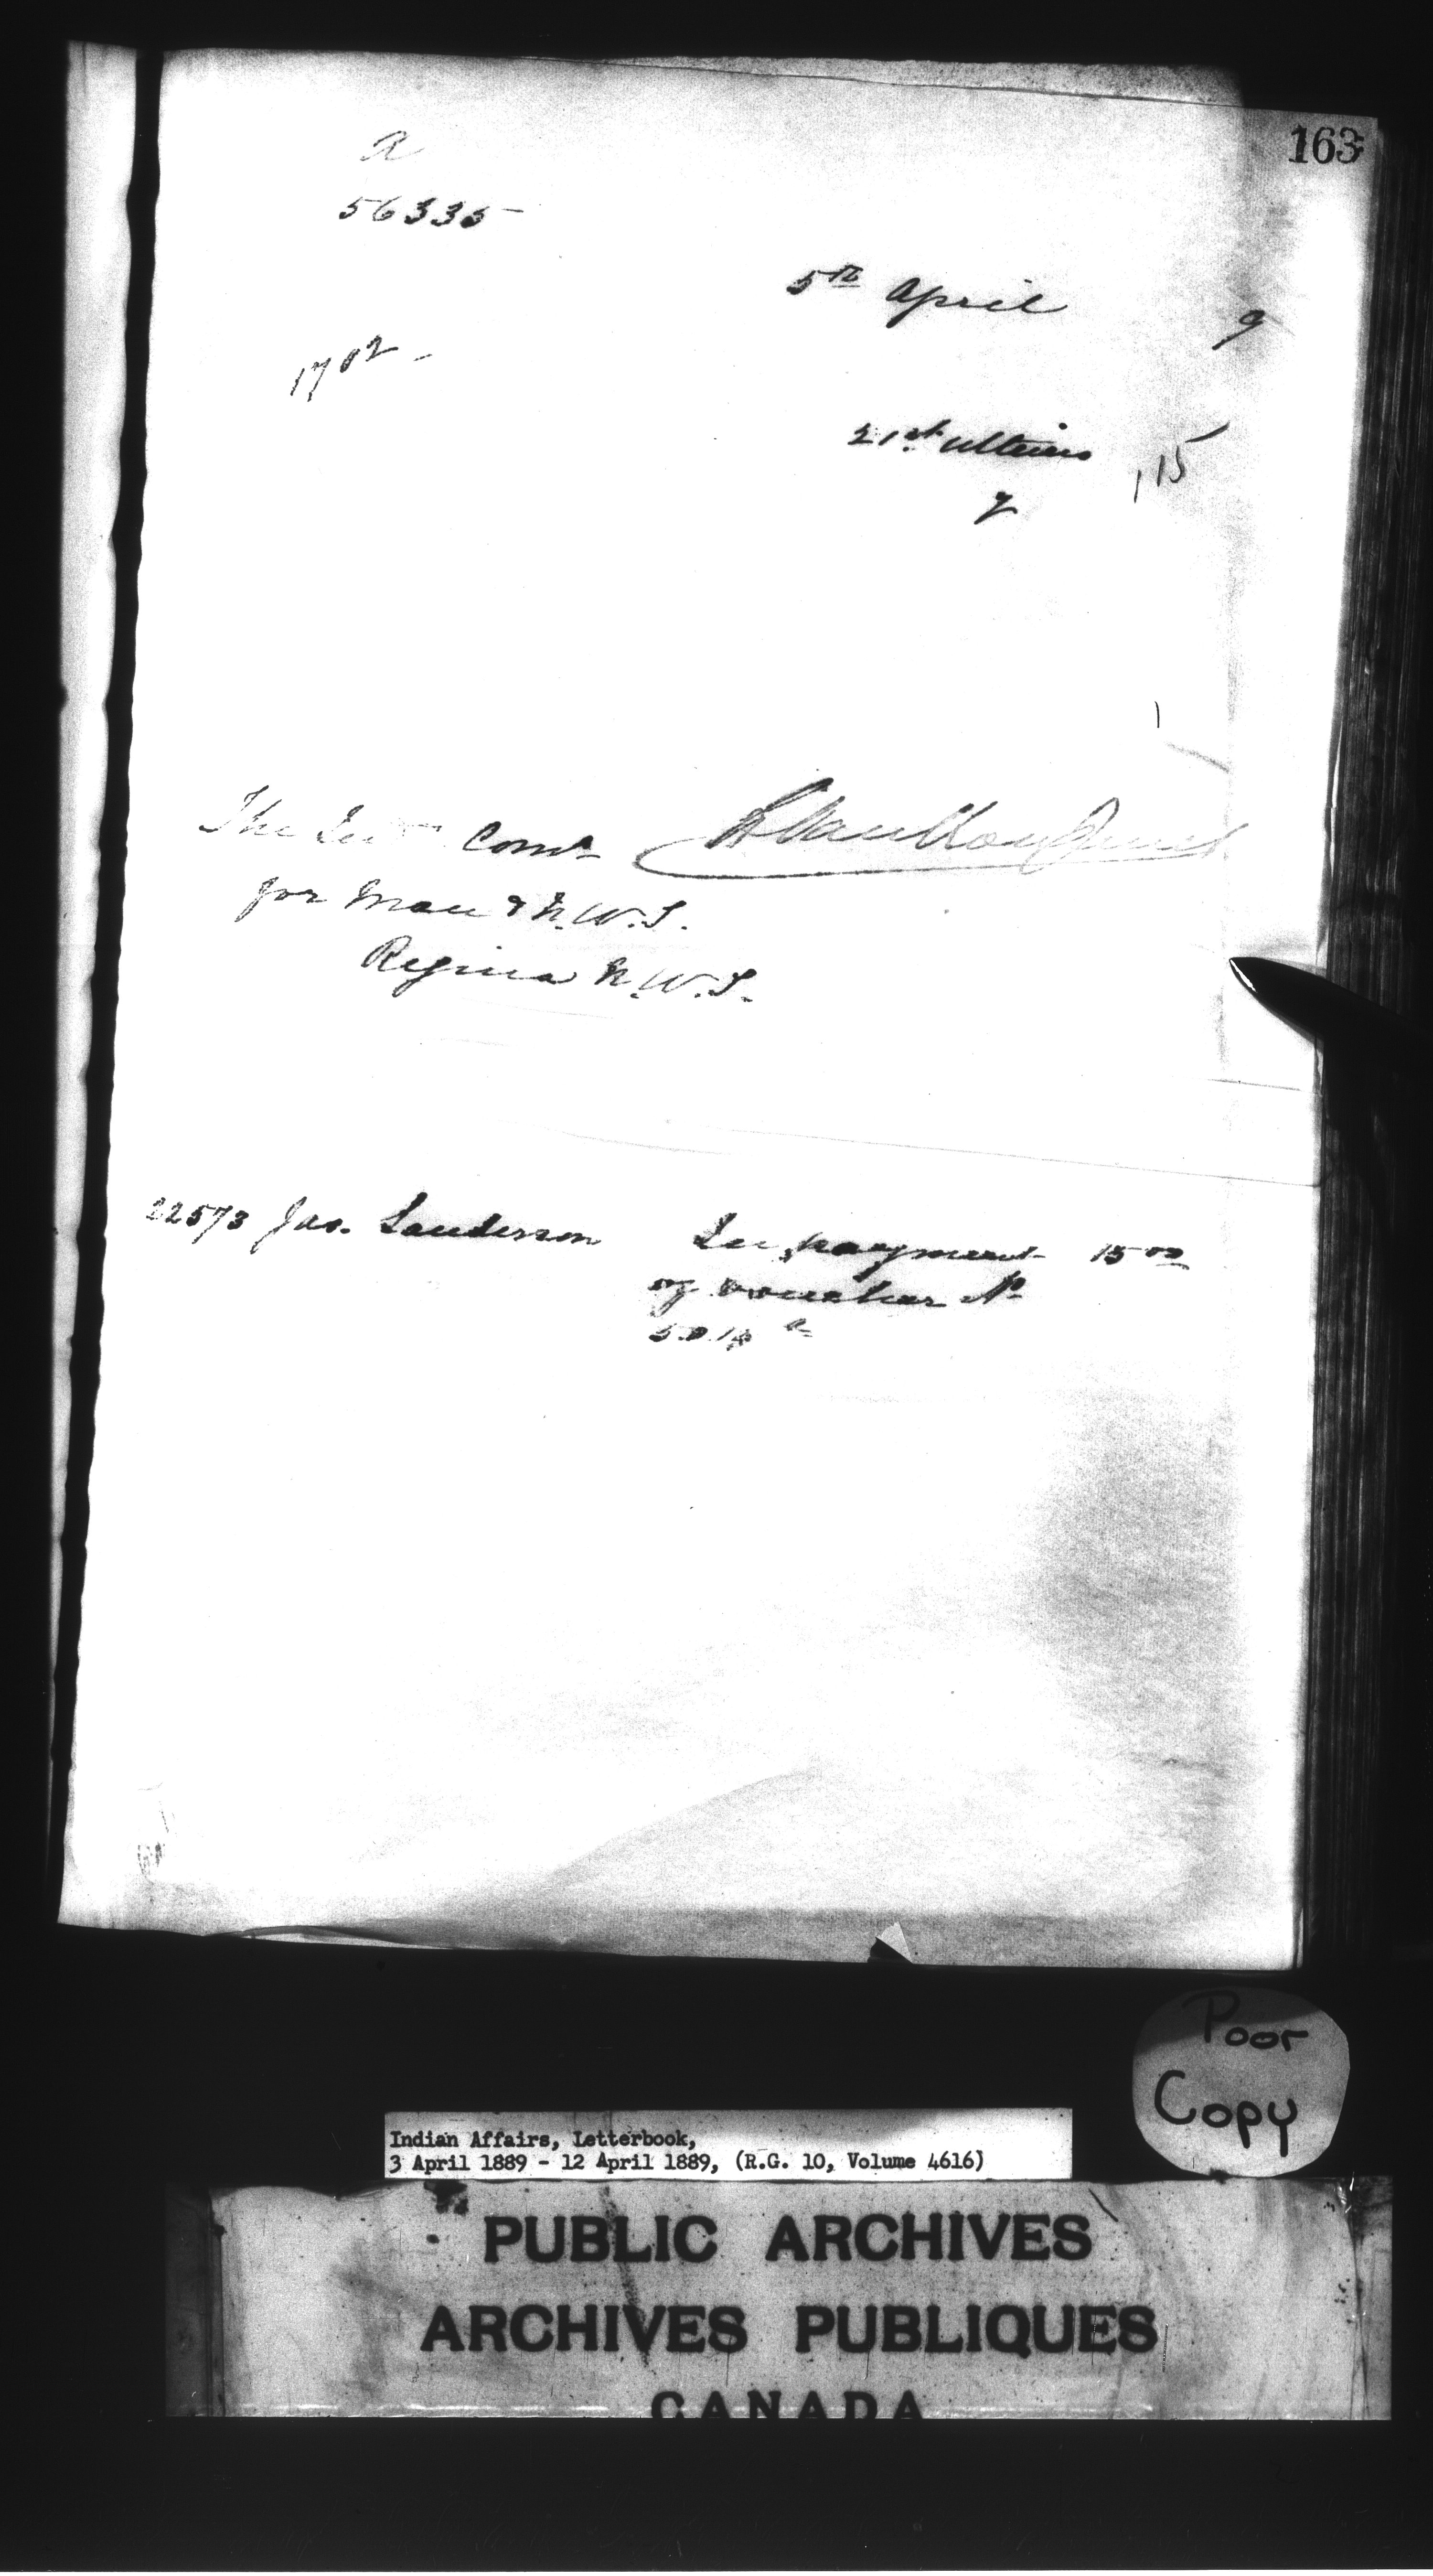 163
a
56335
5th April 9
1702
21st ultimo 15
y
L. Vankoughnet
The Comr
for Man & N.W.T.
Regina N.W.T.
22573 Jas. Sanderson In payment 15 00
of voucher No
Poor
Copy
Indian Affairs, Letterbook,
3 April 1889 - 12 April 1889, (R.G. 10, Volume 4616)
PUBLIC ARCHIVES
ARCHIVES PUBLIQUES
CANADA